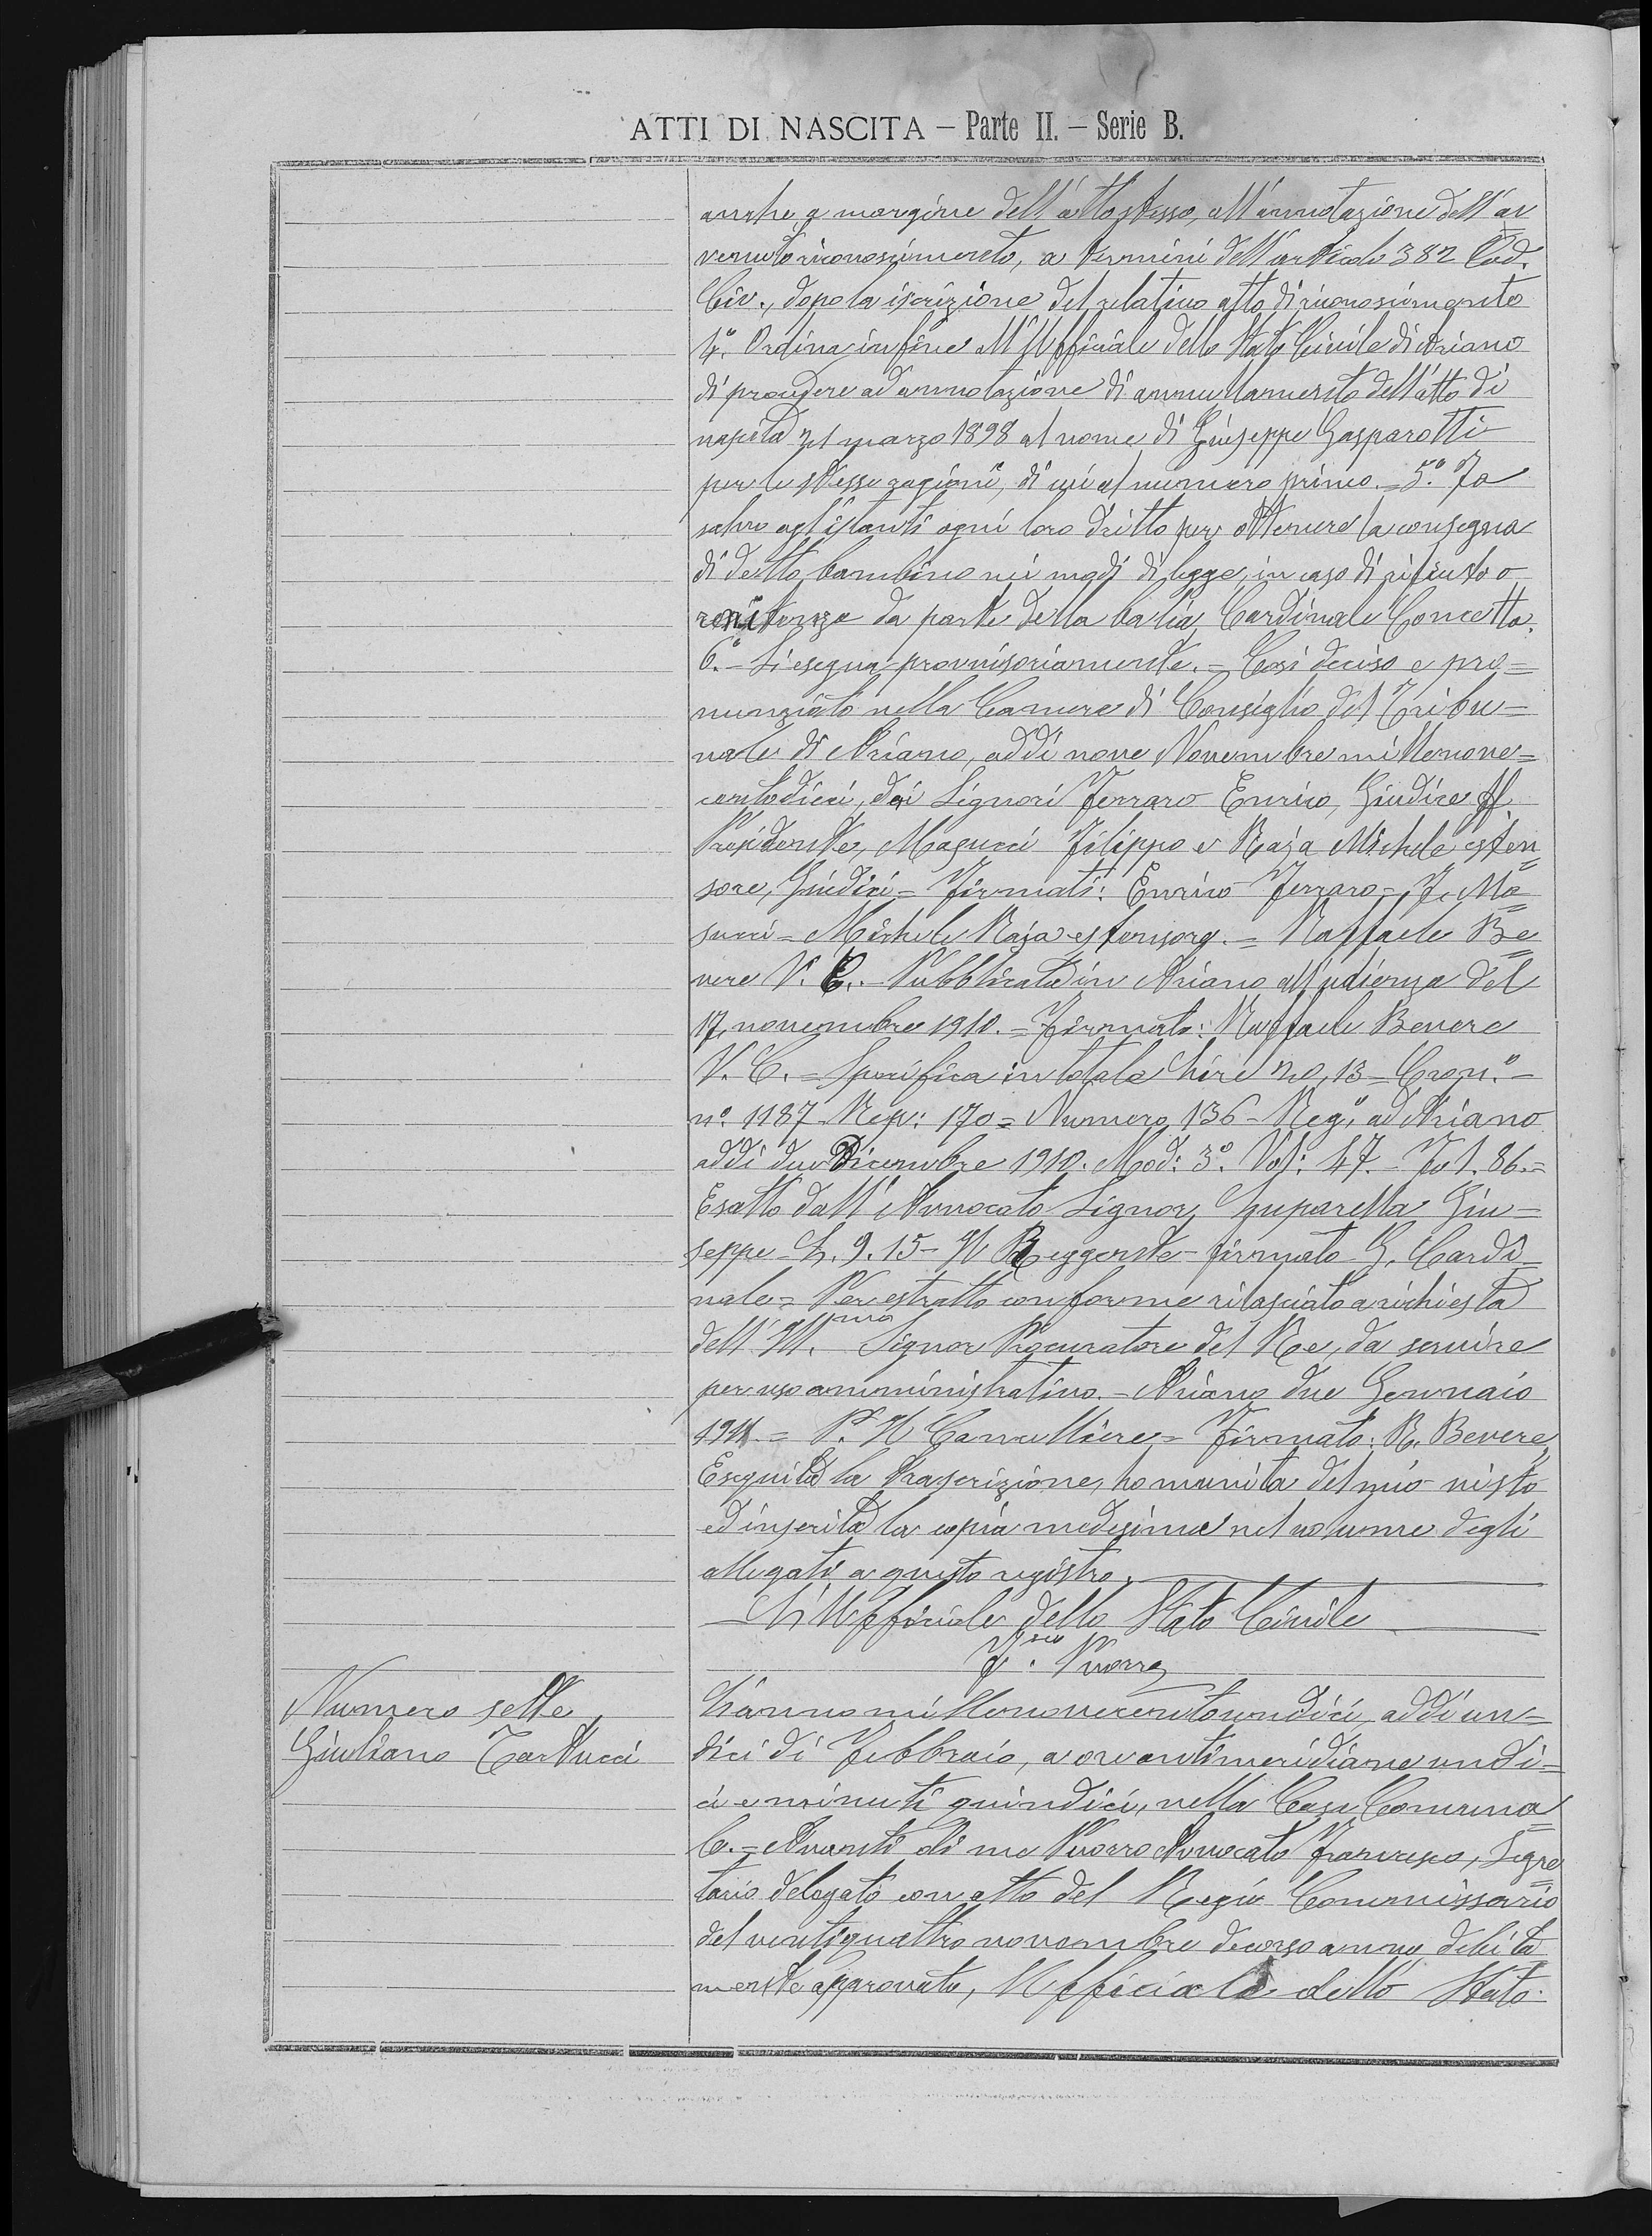 ATTI DI NASCITA — Parte II. — Serie B.
anche a margine dell'atto stesso, all'annotazione dell'av
venuto riconoscimento, a termini dell'articolo 382 Cod.
Civ., dopo la iscrizione del relativo atto di riconoscimento
4.º Ordina infine all'Ufficiale dello Stato Civile di Ariano
di procedere ad annotazione di annullamento dell'atto di
nascita 21 marzo 1898 al nome di Giuseppe Gasparotti
per le stesse ragioni, di cui al numero primo. = 5.º Fa
salvo agl'istanti ogni loro dritto per ottenere la consegna
di detto bambino nei modi di legge, in caso di rifiuto o
resistenza da parte della balia Cardinale Concetta.
6.º - Si esegua provvisoriamente. = Così deciso e pro=
nunziato nella Camera di Consiglio del Tribu=
nale di Ariano, addì nove Novembre millenove=
centodieci, dai Signori Ferraro Enrico, Giudice ff
Presidente, Masucci Filippo e Raja Michele esten
sore, Giudici = Firmati: Enrico Ferraro = F. Ma
succi = Michele Raja estensore. = Raffaele Be
vere V. C. - Pubblicata in Ariano all'udienza del
17 novembre 1910. = Firmato: Raffaele Bevere
V. C. = Specifica in totale Lire 20,13 = Cron.º =
nº. 1187 - Rep: 170 = Numero 136 - Reg.º ad Ariano
addì due Dicembre 1910. Mod: 3º. Vol: 47. - Fol. 86. =
Esatto dall'Avvocato Signor Giu=
seppe - L. 9.15 - Il Reggente - firmato G. Cardi=
nale = Per estratto conforme rilasciato a richiesta
dell'Ill.mo Signor Procuratore del Re, da servire
per uso amministrativo. = Ariano due Gennaio
1911 = P. Il Cancelliere = Firmato: R. Bevere
Eseguita la trascrizione, ho munita del mio visto
ed inserita la copia medesima nel volume degli
allegati a questo registro.
L'Ufficiale dello Stato Civile
F.sco Puorro
Numero sette
Giuliano Tartucci
L'anno millenovecentoundici, addì un=
dici di Febbraio, a ore antimeridiane undi=
ci e minuti quindici, nella Casa Comuna
le. = Avanti di me Puorro Avvocato Francesco, Segre
tario delegato con atto del Regio Commissario
del ventiquattro novembre decorso anno, debita
mente approvato, Ufficiale dello Stato